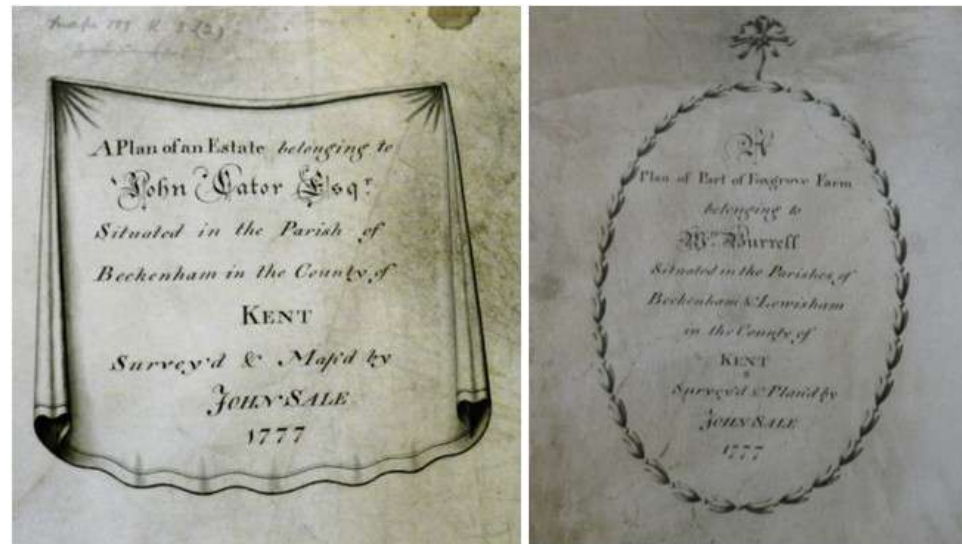 A Plan of an Estate belonging to
John Cator Esqr.
Situated in the Parish of
Beckenham in the County of
KENT
Survey'd & Map'd by
JOHN SALE
1777
A
Plan of Part of Foxgrove Farm
belonging to
Burrell
Situated in the Parishes of
Beckenham & Lewisham
in the County of
KENT
Survey'd & Plan'd by
JOHN SALE
1777